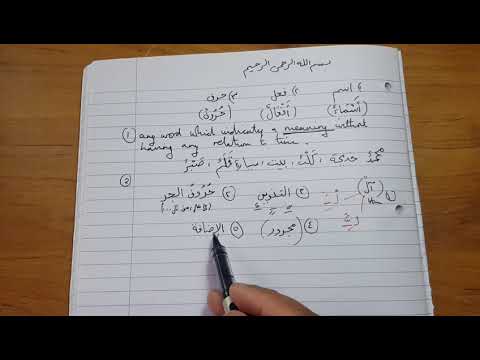 بسم الله الرحمن الرحيم
١ اسم ٢ فعل ٣ حرف
(أَسْمَاءٌ) (أَفْعَالٌ) (حُرُوْفٌ)
① any word which indicates a meaning without
having any relation to time.
مُحَمَّدٌ خديجة أَكْلٌ، بيت سيارة قَلَمٌ
② ① (أَلْ) the ٣ التنوين ٢ حُرُوْفُ الجر
٤ (مجرور) ٥ الإضافة